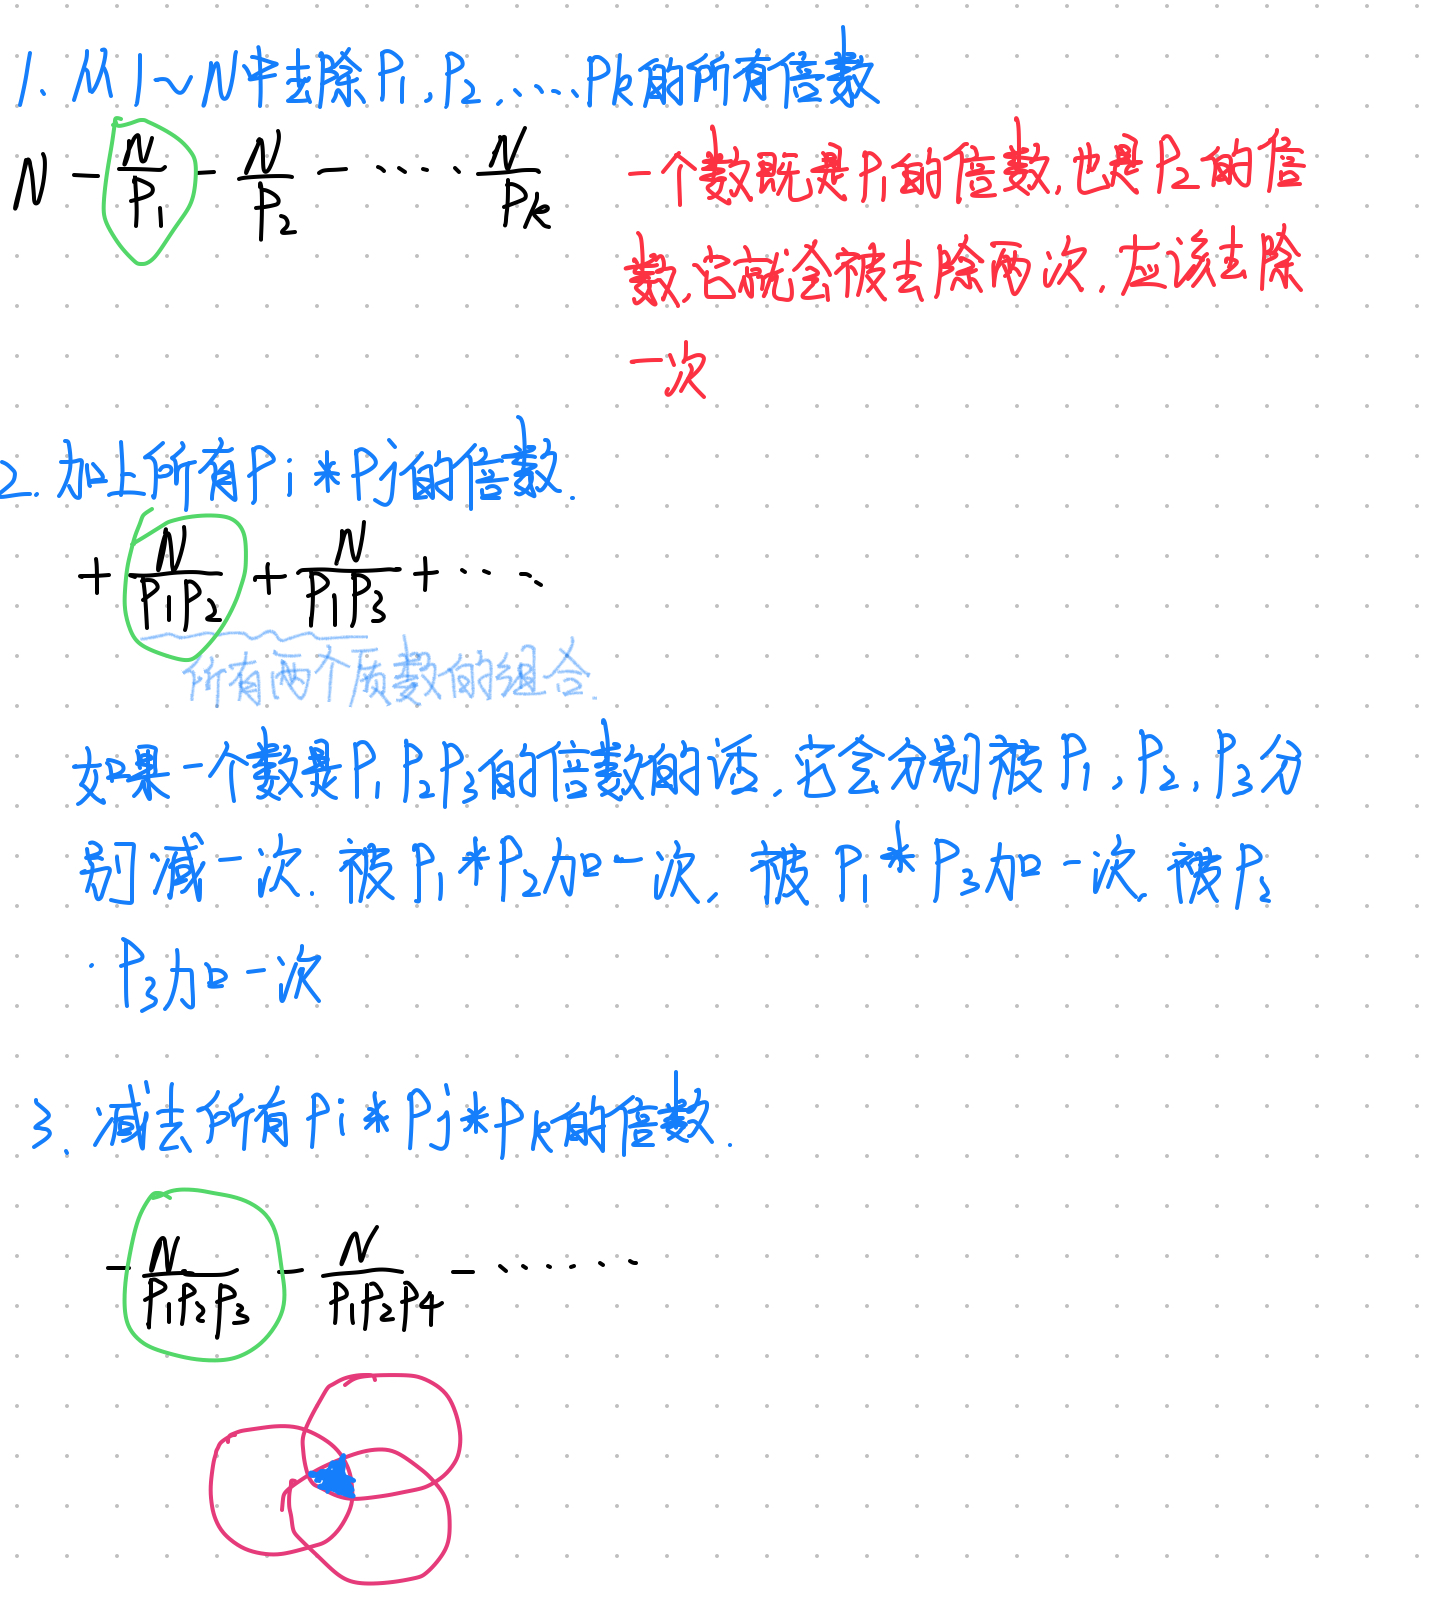 1. 从1~N中去除P₁,P₂,....Pk的所有倍数
N - N/P₁ - N/P₂ - ..... N/Pk
一个数既是P₁的倍数,也是P₂的倍
数,它就会被去除两次,应该去除
一次
2. 加上所有Pi*Pj的倍数.
+ N/P₁P₂ + N/P₁P₃ + ....
所有两个质数的组合.
如果一个数是P₁P₂P₃的倍数的话,它会分别被P₁,P₂,P₃分
别减一次.被P₁*P₂加一次,被P₁*P₃加一次.被P₂
·P₃加一次
3. 减去所有Pi*Pj*Pk的倍数.
- N/P₁P₂P₃ - N/P₁P₂P₄ - ......